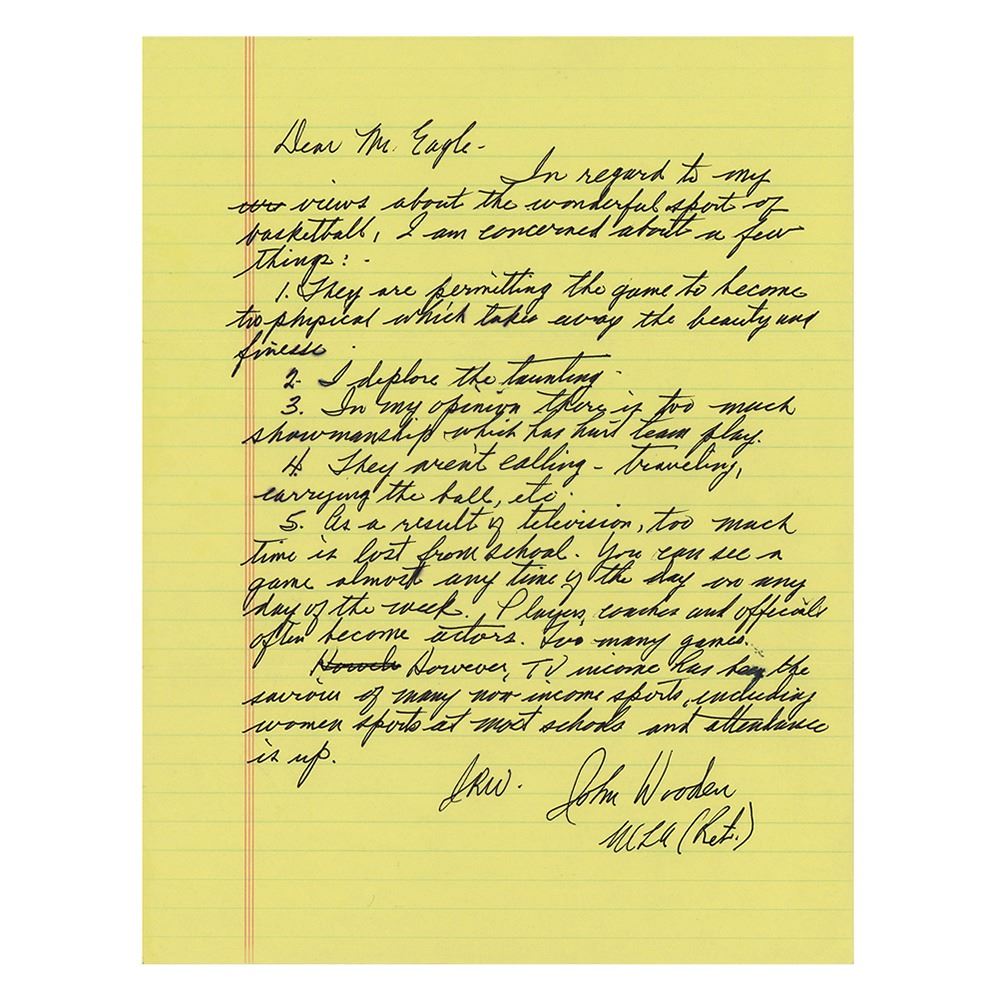 Dear Mr. Eagle-
In regard to my
views about the wonderful sport of
basketball, I am concerned about a few
things: -
1. They are permitting the game to become
too physical which takes away the beauty and
finesse.
2. I deplore the taunting.
3. In my opinion there is too much
showmanship which has hurt team play.
4. They aren't calling - traveling,
carrying the ball, etc.
5. As a result of television, too much
time is lost from school. You can see a
game almost any time of the day on any
day of the week. Players, coaches and officials
often become actors. Too many games.
However, TV income has been the
saviour of many non income sports, including
women sports at most schools and attendance
is up.
JRW. John Wooden
UCLA (Ret.)